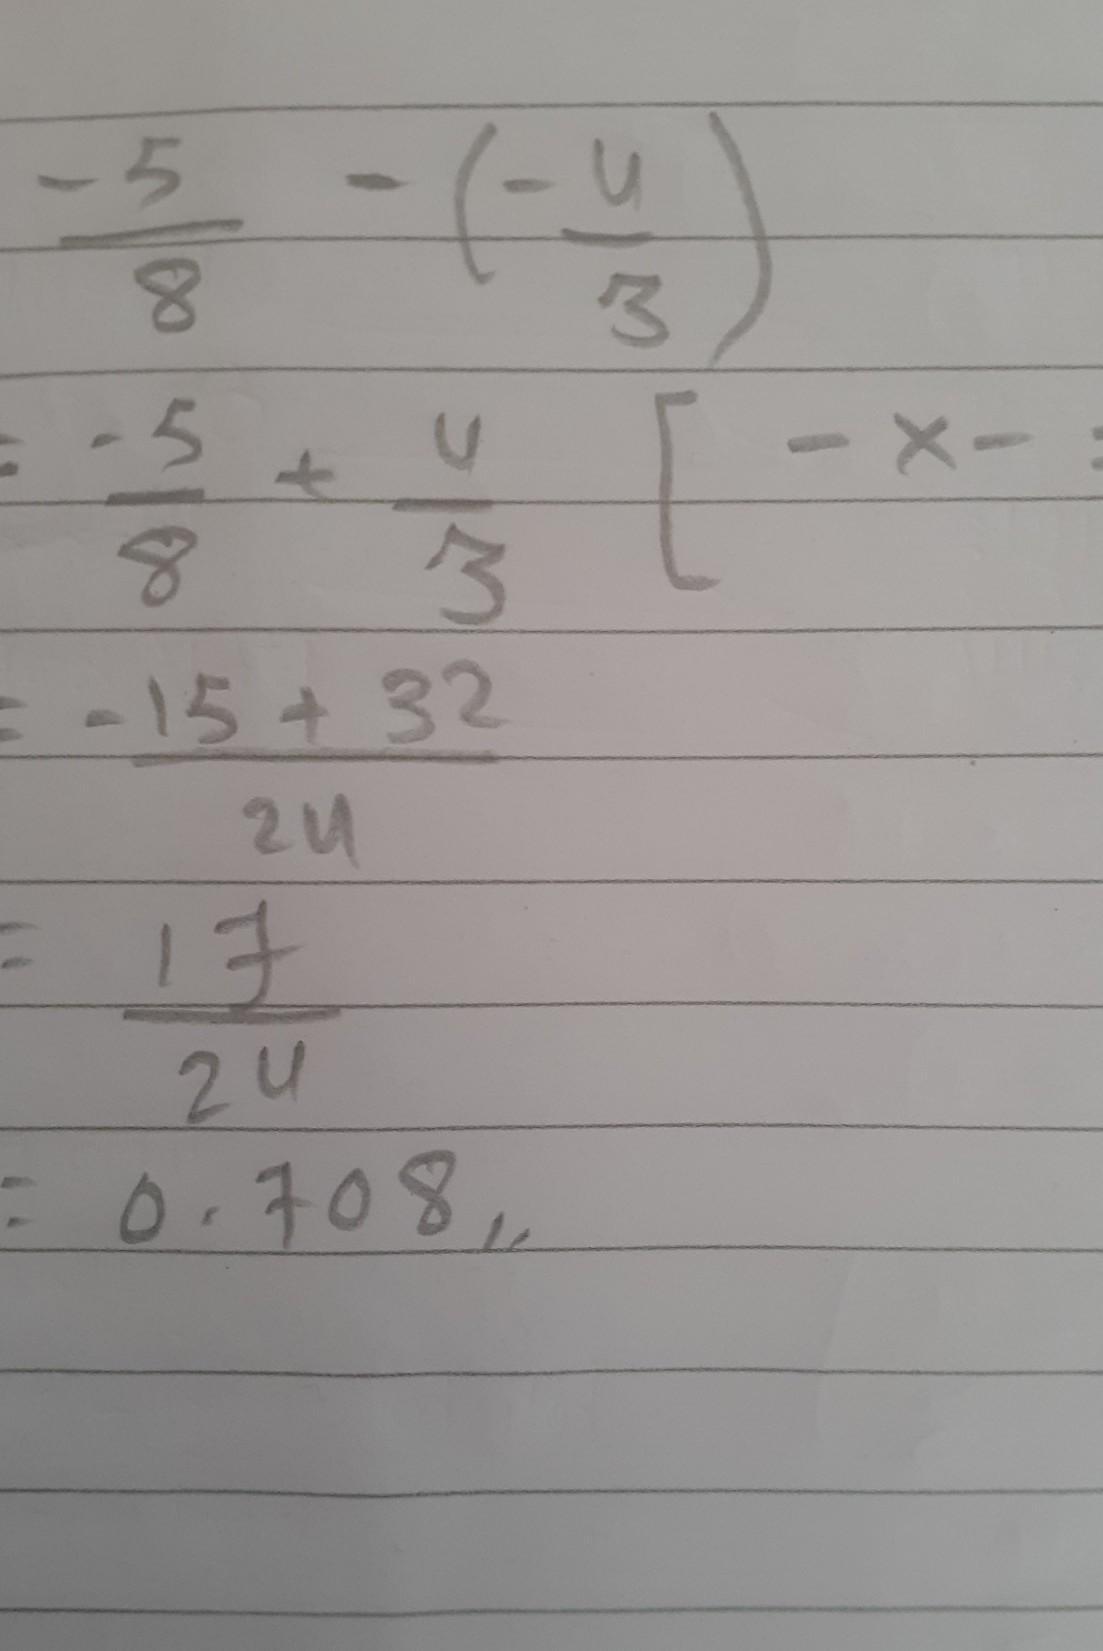 -5/8 - (-4/3)
= -5/8 + 4/3 [ - × - =
= -15 + 32 / 24
= 17/24
= 0.708,,